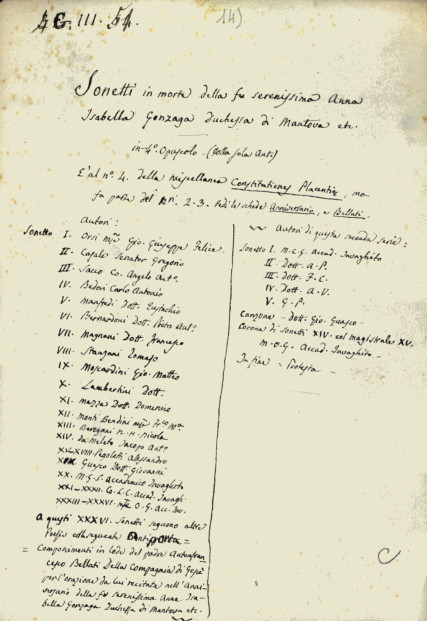 4G. III. 54.
14)
Sonetti in morte della fu serenissima Anna
Isabella Gonzaga Duchessa di Mantova etc.
in-4º. Opuscolo - (della sola Ant.)
È al nº. 4. della miscellanea Constitutiones Placentiæ, ma
fa parte del nº. 2-3. Vedi le schede Anniversario, e Bellati.
Autori:
Sonetto I. Orsi Gio. Giuseppe Felice
II. Casale Senator Gregorio
III. Sacco Co. Angelo Antº.
IV. Bedori Carlo Antonio
V. Manfredi Dott. Eustachio
VI. Bernardoni Dott. Pietro Antº.
VII. Magnani Dott. Francesco
VIII. Stanzani Tomaso
IX. Moscardini Gio. Matteo
X. Lambertini Dott.
XI. Mazza Dott. Domenico
XII. Monti Bendini
XIII. Beregani N. H. Nicola
XIV. da Melato Jacopo Antº
XV-XVIII. Segolati Alessandro
XIX. Guasco Dott. Giovanni
XX. M.G.S. Accademico Invaghito
XXI-XXXII. Co. L.C. Accad. Invagh.
XXXIII-XXXVI. O. G. Acc. Inv.
A questi XXXVI. Sonetti seguono altre
Poesie coll' Antiporta =
Componimenti in lode del padre Antonfran-
cesco Bellati Della Compagnia di Gesù
per l'orazione da lui recitata nell' Anni-
versario della fu serenissima Anna Isa-
bella Gonzaga Duchessa di Mantova etc.
Autori di questa seconda serie:
Sonetto I. M.C.G. Accad. Invaghito
II. Dott. A.P.
III. Dott. F.C.
IV. Dott. A.V.
V. G.P.
Canzone - Dott. Gio. Guasco -
Corona di Sonetti XIV. col magistrale XV.
M.O.G. Accad. Invaghito -
In fine - Protesta -